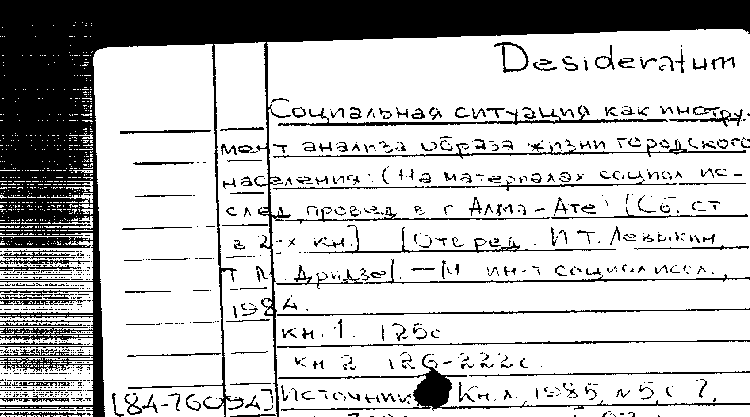 Desideratum
Социальная ситуация как инстру-
мент анализа образа жизни городского
населения: (На материалах социол ис-
след, провед в г Алма-Ате) [Сб. ст
в 2-х кн.] [Отв ред. И Т. Левыкин,
Т М. Дридзе]. — М ин-т социол иссл.,
1984.
кн. 1. 125с
кн 2 126-222с.
[84-76094] Источник Кн. л, 1985, N5, с 7,